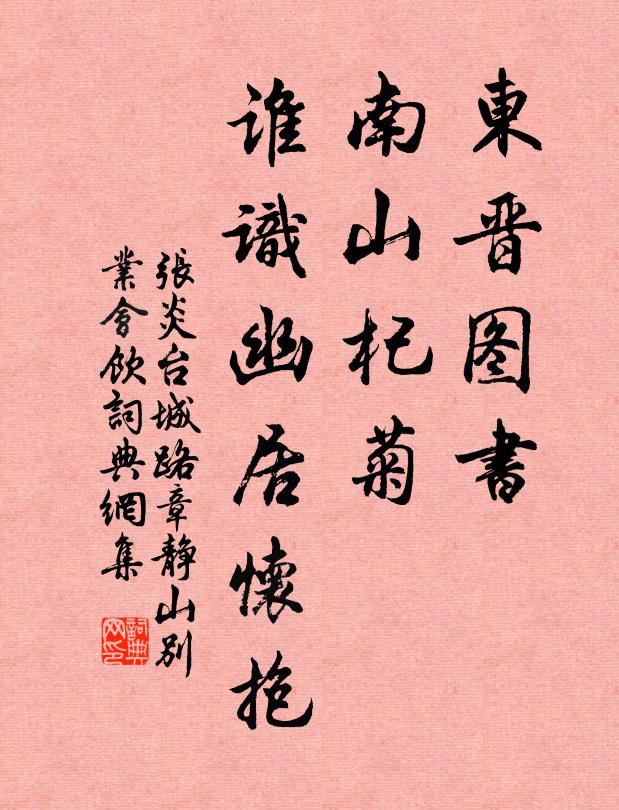 東晋图書
南山杞菊
誰識幽居懷抱
張炎台城路章静山别
業會飲詞典網集
詞典网印